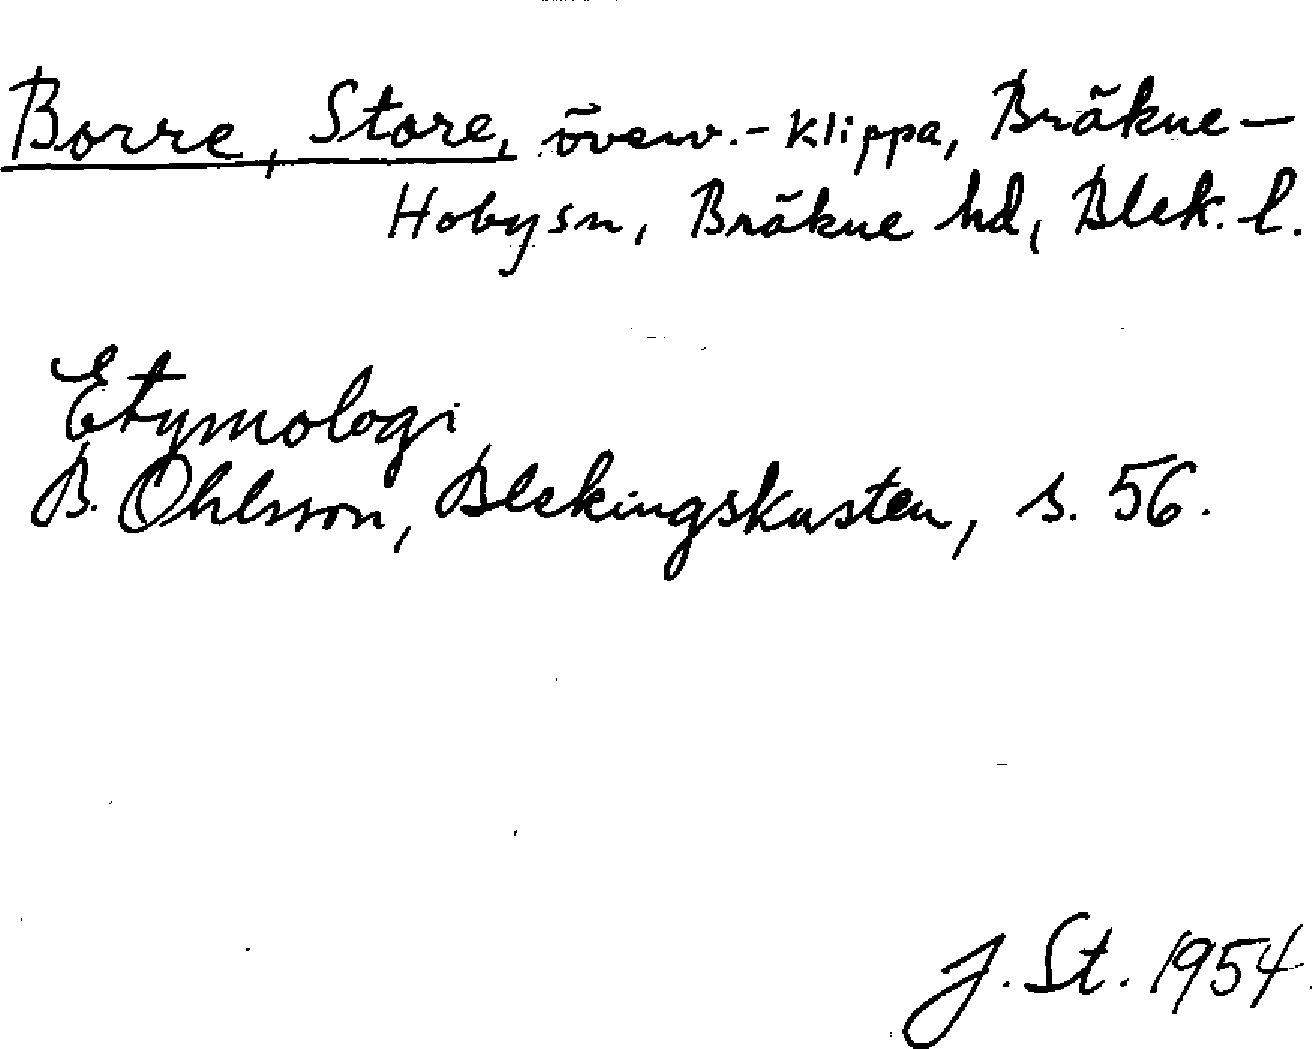 Borre, Store, överv.-klippa, Bräkne-
Hobysn, Bräkne hd, Blek. l.
Etymologi
B. Ohlsson, Blekingskusten, s. 56.
J. St. 1954.